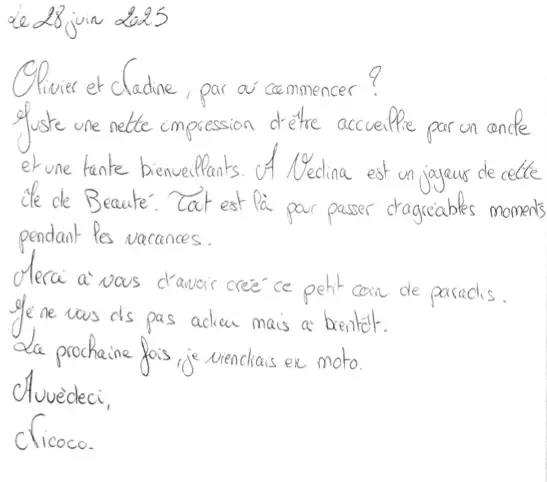 Le 28 juin 2025
Olivier et Nadine, par où commencer ?
Juste une nette impression d'être accueillie par un oncle
et une tante bienveillants. A Vedina est un joyaux de cette
île de Beauté. Tout est là pour passer d'agréables moments
pendant les vacances.
Merci à vous d'avoir créé ce petit coin de paradis.
Je ne vous dis pas adieu mais à bientôt.
La prochaine fois, je viendrais en moto.
Avvèdeci,
Nicoco.